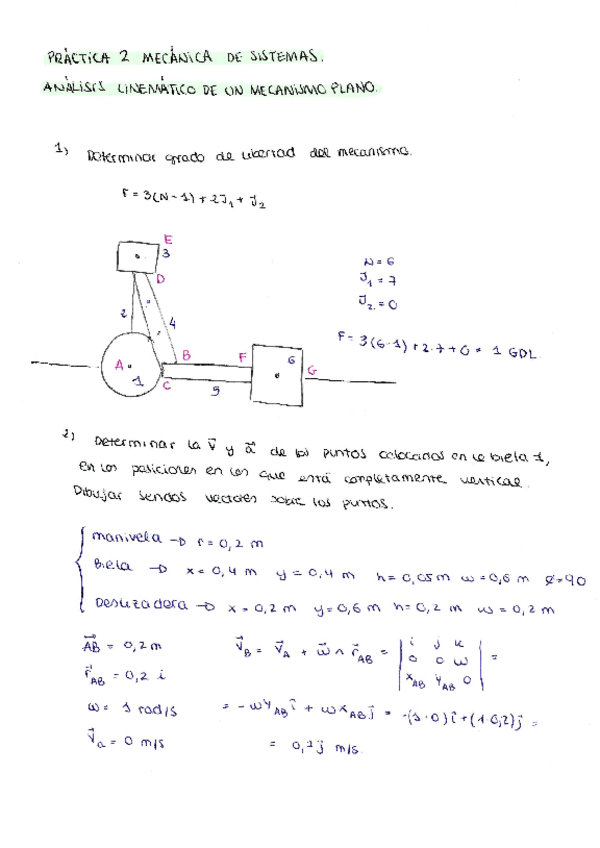 PRÁCTICA 2 MECÁNICA DE SISTEMAS.
ANÁLISIS CINEMÁTICO DE UN MECANISMO PLANO.
1) Determinar grado de libertad del mecanismo.
F = 3(N-1) + 2J₁ + J₂
E
3
D
2
4
A
1
B
C
F
5
6
G
N = 6
J₁ = 7
J₂ = 0
F = 3(6-1) + 2·7 + 0 = 1 GDL
2) Determinar la v⃗ y a⃗ de los puntos colocados en la biela 1,
en las posiciones en las que está completamente vertical.
Dibujar sendos vectores sobre los puntos.
manivela → r = 0,2 m
Biela → x = 0,4 m y = 0,4 m h = 0,05 m w = 0,6 m φ = 90
Deslizadera → x = 0,2 m y = 0,6 m h = 0,2 m w = 0,2 m
AB⃗ = 0,2 m
r⃗AB = 0,2 i
ω = 1 rad/s
V⃗a = 0 m/s
V⃗B = V⃗A + ω⃗ ∧ r⃗AB = | i j k | =
| 0 0 ω |
| xAB yAB 0 |
= -ωyAB î + ωxAB ĵ = -(1·0)î + (1·0,2)ĵ =
= 0,2 ĵ m/s.